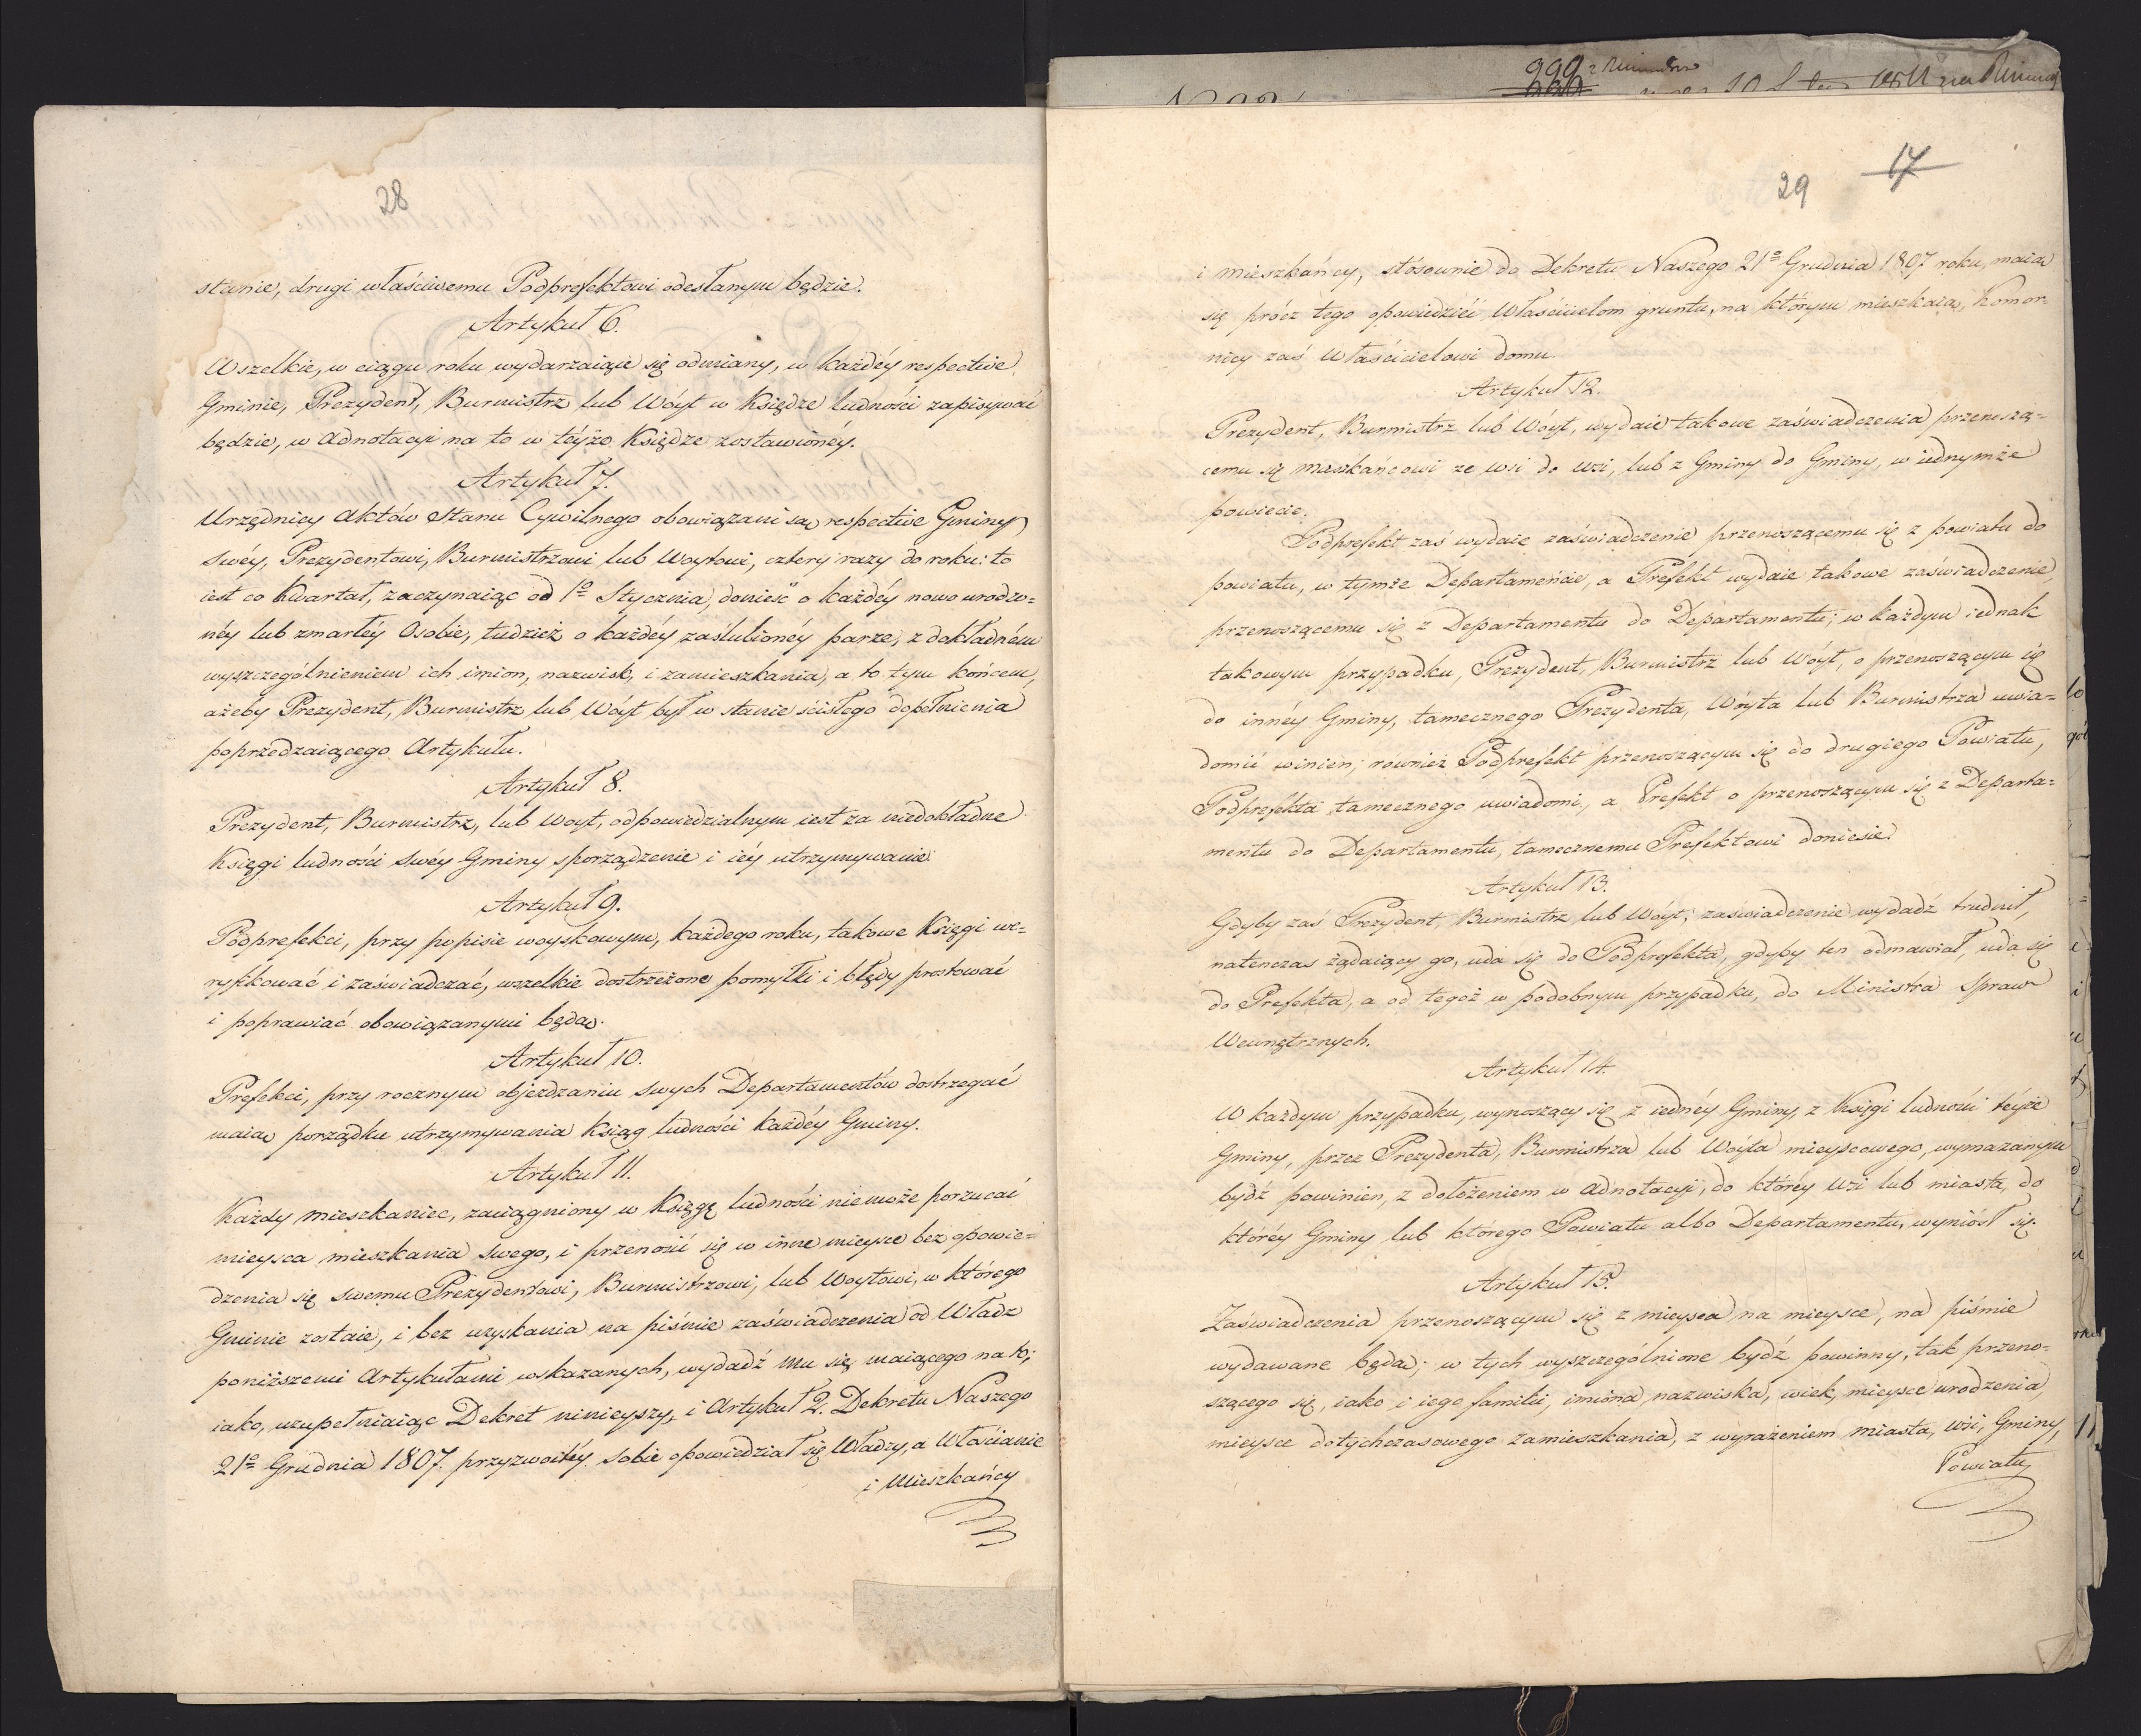 28
stanie, drugi właściwemu Podprefektowi odesłanym będzie.
Artykuł 6.
Wszelkie, w ciągu roku wydarzaiące się odmiany, w każdéy respective
Gminie, Prezydent, Burmistrz lub Wóyt w Księdze ludności zapisywać
będzie, w adnotacyi na to w téyże Księdze zostawionéy.
Artykuł 7.
Urzędnicy Aktów Stanu Cywilnego obowiązani są respective Gminy
swéy, Prezydentowi, Burmistrzowi lub Woytowi, cztery razy do roku: to
iest co Kwartał, zaczynaiąc od 1º Stycznia, donieść o każdéy nowo urodzo=
néy lub zmarłéy Osobie, tudzież o każdéy zaślubionéy parze, z dokładném
wyszczególnieniem ich imion, nazwisk, i zamieszkania, a to tym końcem,
ażeby Prezydent, Burmistrz lub Wóyt był w stanie ścisłego dopełnienia
poprzedzaiącego Artykułu.
Artykuł 8.
Prezydent, Burmistrz, lub Woyt, odpowiedzialnym iest za niedokładne
Księgi ludności swéy Gminy sporządzenie i iéy utrzymywanie.
Artykuł 9.
Podprefekci, przy popisie woyskowym, każdego roku, takowe Księgi we=
ryfikować i zaświadczać, wszelkie dostrzeżone pomyłki i błędy prostować
i poprawiać obowiązanymi będą.
Artykuł 10.
Prefekci, przy rocznym objezdzaniu swych Departamentów dostrzegać
maią porządku utrzymywania Ksiąg ludności każdéy Gminy.
Artykuł 11.
Każdy mieszkaniec, zaciągniony w Księgę ludności niemoże porzucać
mieysca mieszkania swego, i przenosić się w inne mieysce bez opowie=
dzenia się swemu Prezydentowi, Burmistrzowi, lub Woytowi, w którego
Gminie zostaie, i bez uzyskania na piśmie zaświadczenia od Władz
poniższemi Artykułami wskazanych, wydadź mu się maiącego na to;
iako, uzupełniaiąc Dekret ninieyszy, i Artykuł 2. Dekretu Naszego
21º Grudnia 1807. przyzwoitéy sobie opowiedział się Władzy, a Włościanie
i Mieszkańcy
29
17
i mieszkańcy, stósownie do Dekretu Naszego 21º Grudnia 1807 roku, maią
się prócz tego opowiedzieć Właścicielom gruntu, na którym mieszkaią, Komor=
nicy zaś Właścicielowi domu.
Artykuł 12.
Prezydent, Burmistrz lub Wóyt, wydaie takowe zaświadczenia przenoszą=
cemu się mieszkańcowi ze wsi do wsi, lub z Gminy do Gminy, w iednymże
powiecie.
Podprefekt zaś wydaie zaświadczenie przenoszącemu się z powiatu do
powiatu, w tymże Departamencie, a Prefekt wydaie takowe zaświadczenie,
przenoszącemu się z Departamentu do Departamentu; w każdym iednak
takowym przypadku, Prezydent, Burmistrz lub Wóyt, o przenoszącym się
do innéy Gminy, tamecznego Prezydenta, Wóyta lub Burmistrza uwia=
domić winien; również Podprefekt przenoszącym się do drugiego Powiatu,
Podprefekta tamecznego uwiadomi, a Prefekt o przenoszącym się z Departa=
mentu do Departamentu, tamecznemu Prefektowi doniesie.
Artykuł 13.
Gdyby zaś Prezydent, Burmistrz lub Wóyt, zaświadczenie wydadź trudnił,
natenczas żądaiący go, uda się do Podprefekta, gdyby ten odmawiał, uda się
do Prefekta, a od tegoż w podobnym przypadku, do Ministra Spraw
Wewnętrznych.
Artykuł 14.
W każdym przypadku, wynoszący się z iednéy Gminy, z Księgi ludności téyże
Gminy, przez Prezydenta, Burmistrza lub Wóyta mieyscowego, wymazanym
bydź powinien, z dołożeniem w adnotacyi, do któréy wsi lub miasta, do
któréy Gminy lub którego Powiatu albo Departamentu, wyniósł się.
Artykuł 15.
Zaświadczenia przenoszącym się z mieysca na mieysce, na piśmie
wydawane będą; w tych wyszczególnione bydź powinny, tak przeno=
szącego się, iako i iego familii, imiona, nazwiska, wiek, mieysce urodzenia,
mieysce dotychczasowego zamieszkania, z wyrażeniem miasta, wsi, Gminy,
Powiatu,